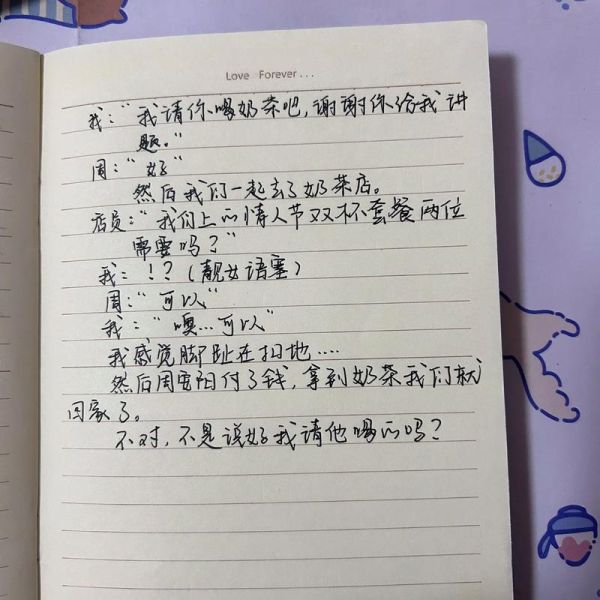 Love Forever...
我:“我请你喝奶茶吧,谢谢你给我讲
题。”
周:“好”
然后我们一起去了奶茶店。
店员:“我们上的情人节双杯套餐两位
需要吗?”
我:!?(靓女语塞)
周:“可以”
我:“噢...可以”
我感觉脚趾在扣地....
然后周安阳付了钱,拿到奶茶我们就
回家了。
不对,不是说好我请他喝的吗?